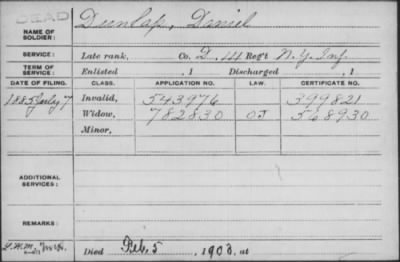 DEAD
NAME OF SOLDIER: Dunlap, Daniel
SERVICE: Late rank, Co. D, 111 Reg't N.Y. Inf.
TERM OF SERVICE: Enlisted , 1 Discharged , 1
DATE OF FILING. CLASS. APPLICATION NO. LAW. CERTIFICATE NO.
1885 July 7 Invalid, 543976 399821
Widow, 782830 568930
Minor,
ADDITIONAL SERVICES:
REMARKS:
Died Feb. 5, 1903, at